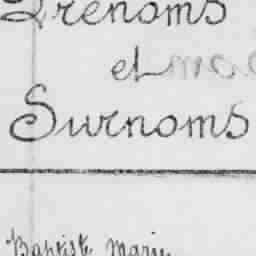 Prénoms
et
Surnoms
Baptiste Marie